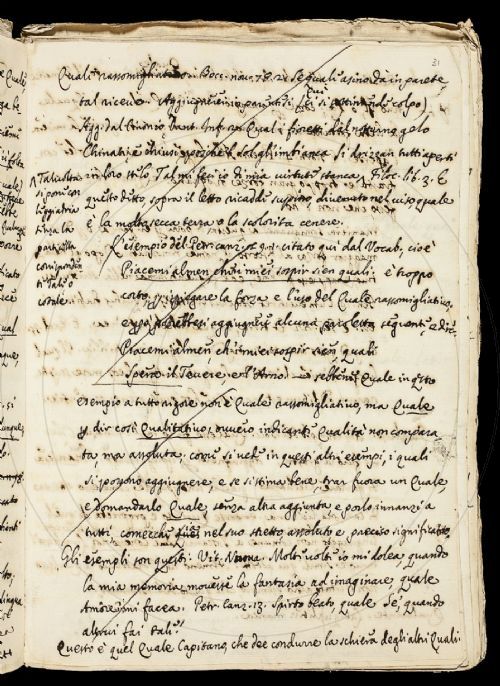 31
Quali rassomigliativo. Bocc. nov. 78. 2. Se quali asino da in parete,
tal riceve.
Agg. dal Dante Inf. 2. Quali i fioretti dal notturno gelo
Chinati, e chiusi poiche 'l sol gli imbianca Si drizzan tutti aperti
in loro stelo Tal mi fec' io di mia virtute stanca. Filoc. lib. 3. E
questo detto sopra il letto ricaddi supino divenuto nel viso quale
è la molto secca terra, o la scolorita cenere.
Talvolta
si pon con
leggiadria
senza la
particella
corrispondente
di Tale o
cotale.
L'esempio del Petr. canz. citato qui dal Vocab, cioè
Piacemi almen ch'i miei sospir sien quali: è troppo
corto, per spiegare la forza e l'uso del Quale rassomigliativo,
e però dovrebbesi aggiugnere alcuna paroletta seguente, e dire
Piacemi almen ch'i miei sospir sien quali
Spera il Tevere, e l'Arno. sebbene Quale in questo
esempio a tutto rigore non è Quale rassomigliativo, ma Quale
per dir così Qualitativo, ovvero indicante Qualità non compara
ta, ma assoluta, come si vede in questi altri esempi, i quali
si possono aggiugnere, e se si stima bene, trar fuora un Quale,
e domandarlo Quale, senza altra aggiunta e porlo innanzi a
tutti, comecchè nel suo stretto assoluto e preciso significato.
Gli esempli son questi: Vit. Nuova. Molte volte io mi dolea, quando
la mia memoria movesse la fantasia ad imaginare quale
Amore mi facea. Petr. Canz. 13. Spirto beato quale Se', quando
altrui fai tale?
Questo è quel Quale Capitano, che dee condurre la schiera degli altri Quali